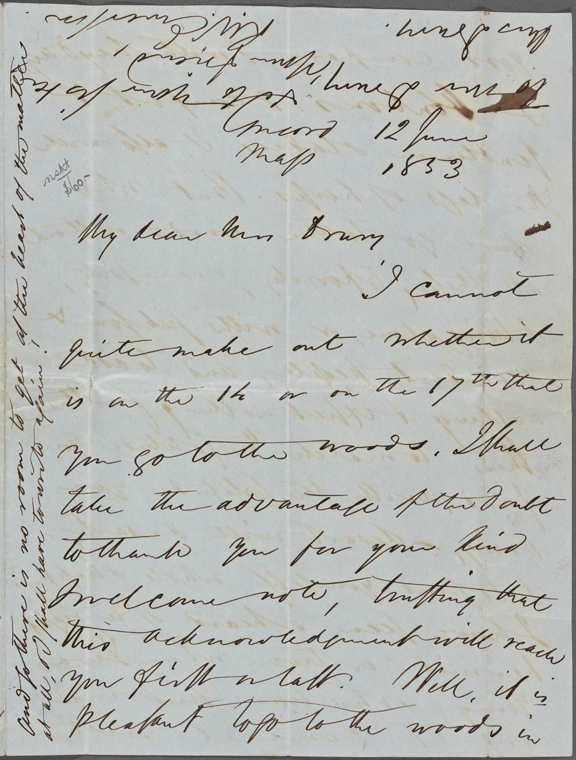 Concord 12 June
Mass 1853
My dear Miss Drury
I cannot
quite make out whether it
is on the 14 or on the 17th that
you go to the woods. I shall
take the advantage of the doubt
to thank you for your kind
welcome note, trusting that
this acknowledgment will reach
you first or last. Well, it is
pleasant to go to the woods in
And so there is no room to get at the heart of the matter
at all, & I shall have to write again!